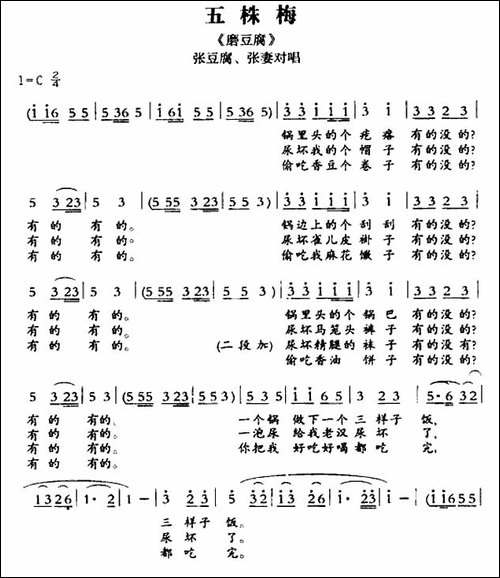 五株梅
《磨豆腐》
张豆腐、张妻对唱
1=C 2/4
(i i6 5 5 | 5 36 5 | i 6i 5 5 | 5 36 5) | 3 3 i i i | 3 i | 3 3 2 3 |
锅里头的个疙瘩 有的没的?
尿坏我的个帽子 有的没的?
偷吃香豆个卷子 有的没的?
5 3 23 | 5 3 | (5 55 3 23 | 5 5 3) | 3 3 i i i | 3 i | 3 3 2 3 |
有的 有的。 锅边上的个刮刮 有的没的?
有的 有的。 尿坏雀儿皮褂子 有的没的?
有的 有的。 偷吃我麻花馓子 有的没的?
5 3 23 | 5 3 | (5 55 3 23 | 5 5 3) | 3 3 i i i | 3 i | 3 3 2 3 |
有的 有的。 锅里头的个锅巴 有的没的?
有的 有的。 尿坏马笼头裤子 有的没的?
有的 有的。 (二段加) 尿坏精腿的袜子 有的没有?
偷吃香油 饼子 有的没的?
5 3 23 | 5 3 | (5 55 3 23 | 5 5 3) | 5 3 5 | i i 6 5 | 3 2 3 | 5·6 32 |
有的 有的。 一个锅 做下一个三样子饭,
有的 有的。 一泡尿 给我老汉尿坏了,
有的 有的。 你把我 好吃好喝都吃完,
有的 有的。
1 3 2 6 | 1· 2 | 1 - | 3 2 3 | 5 32 | i 3 26 | i· 23 | i - | (i i6 5 5 |
三样子饭。
尿坏了。
都吃完。